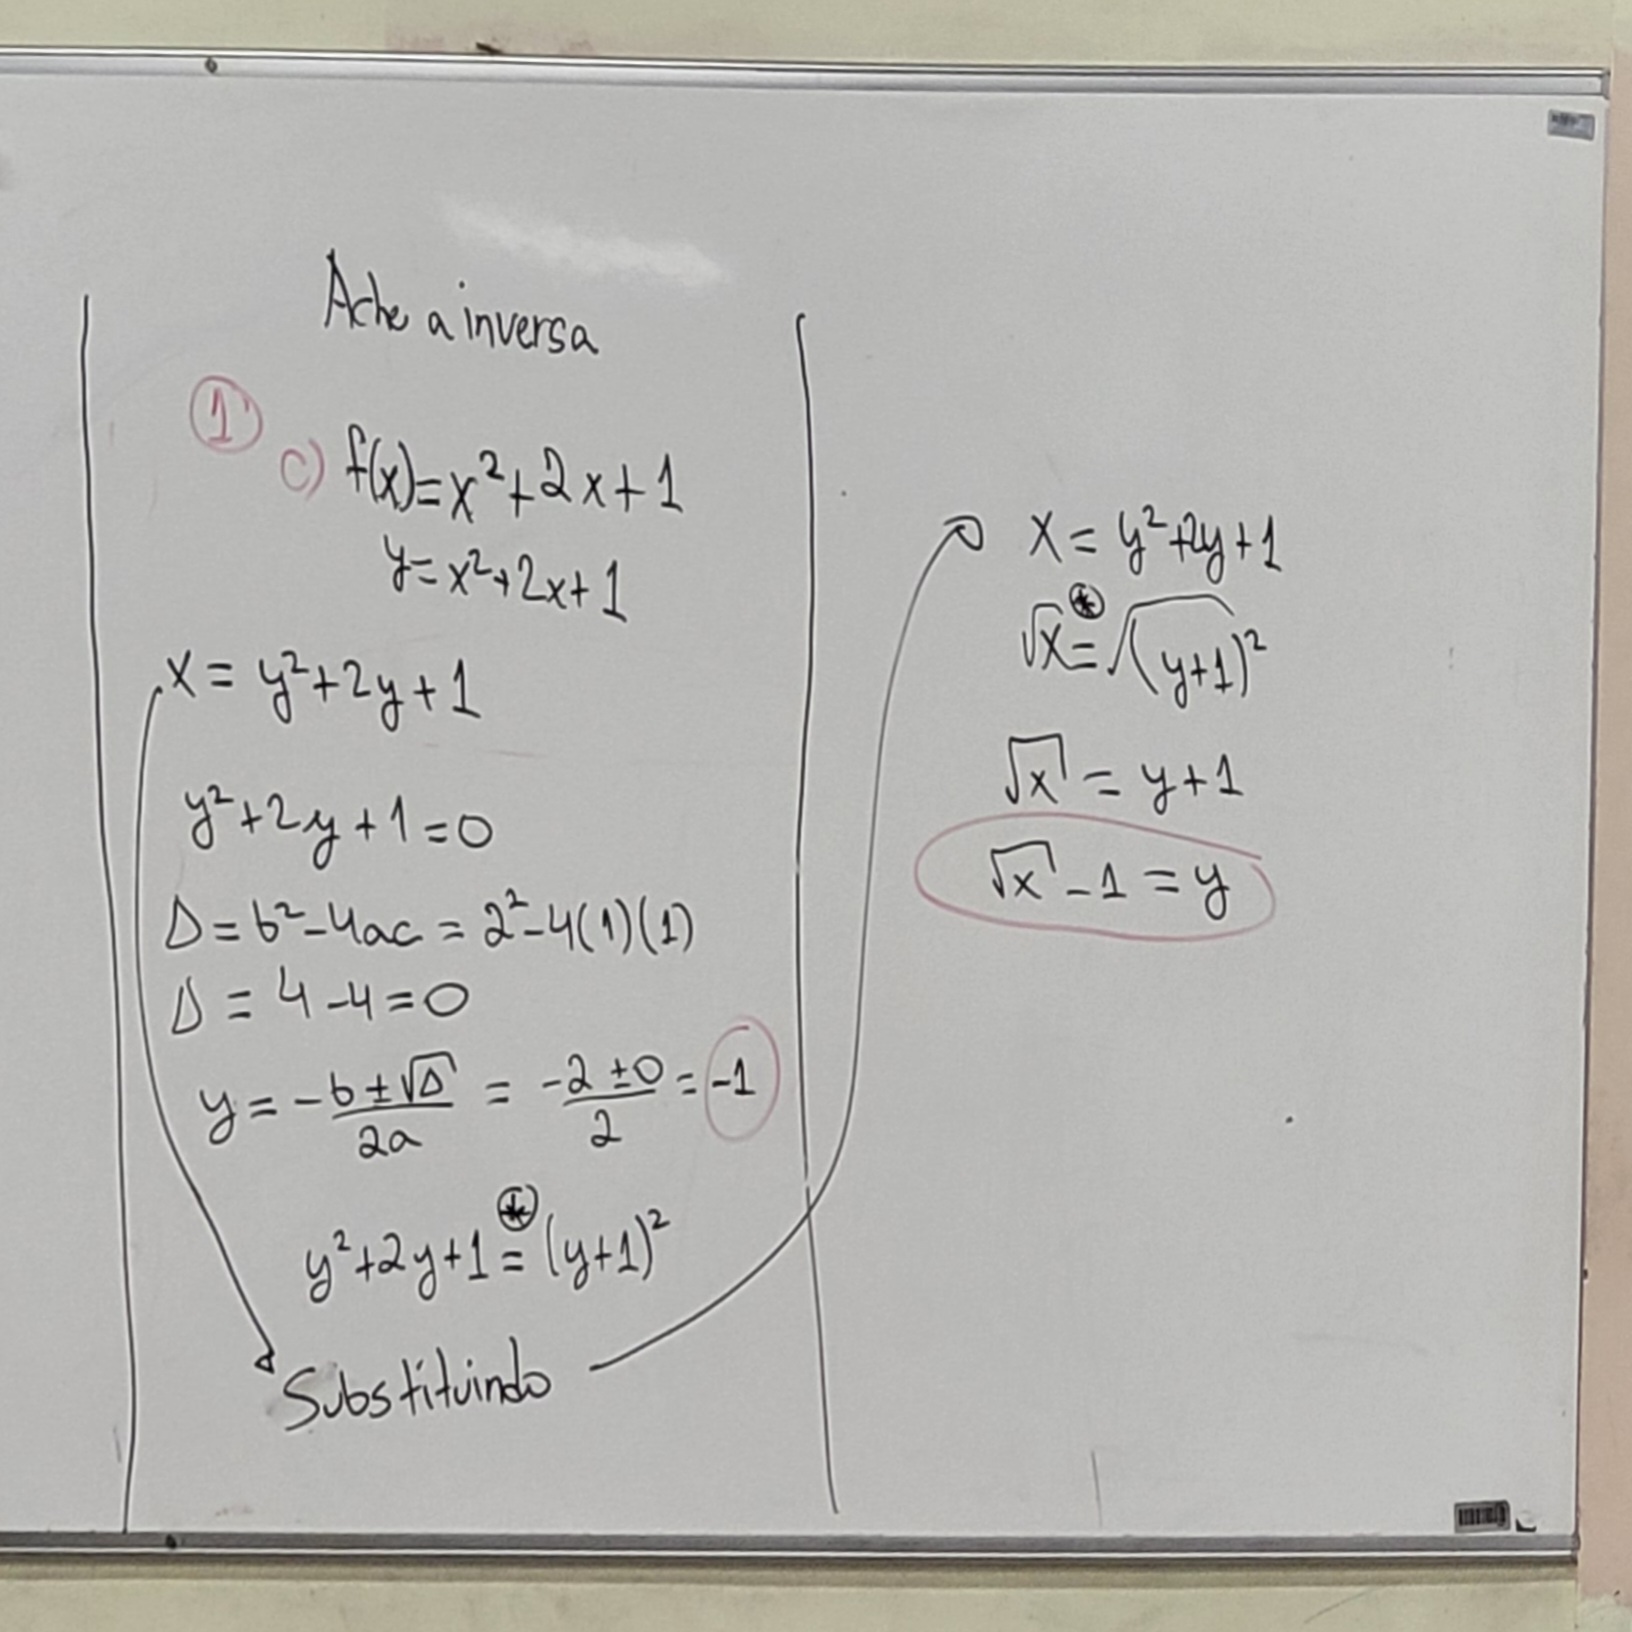 Ache a inversa
1
c) f(x)=x²+2x+1
y=x²+2x+1
x = y²+2y+1
y²+2y+1=0
Δ = b²-4ac = 2²-4(1)(1)
Δ = 4-4=0
y = -b±√Δ / 2a = -2±0 / 2 = -1
y²+2y+1 = (y+1)²
*
Substituindo
x = y²+2y+1
*
√x = √(y+1)²
√x = y+1
√x - 1 = y